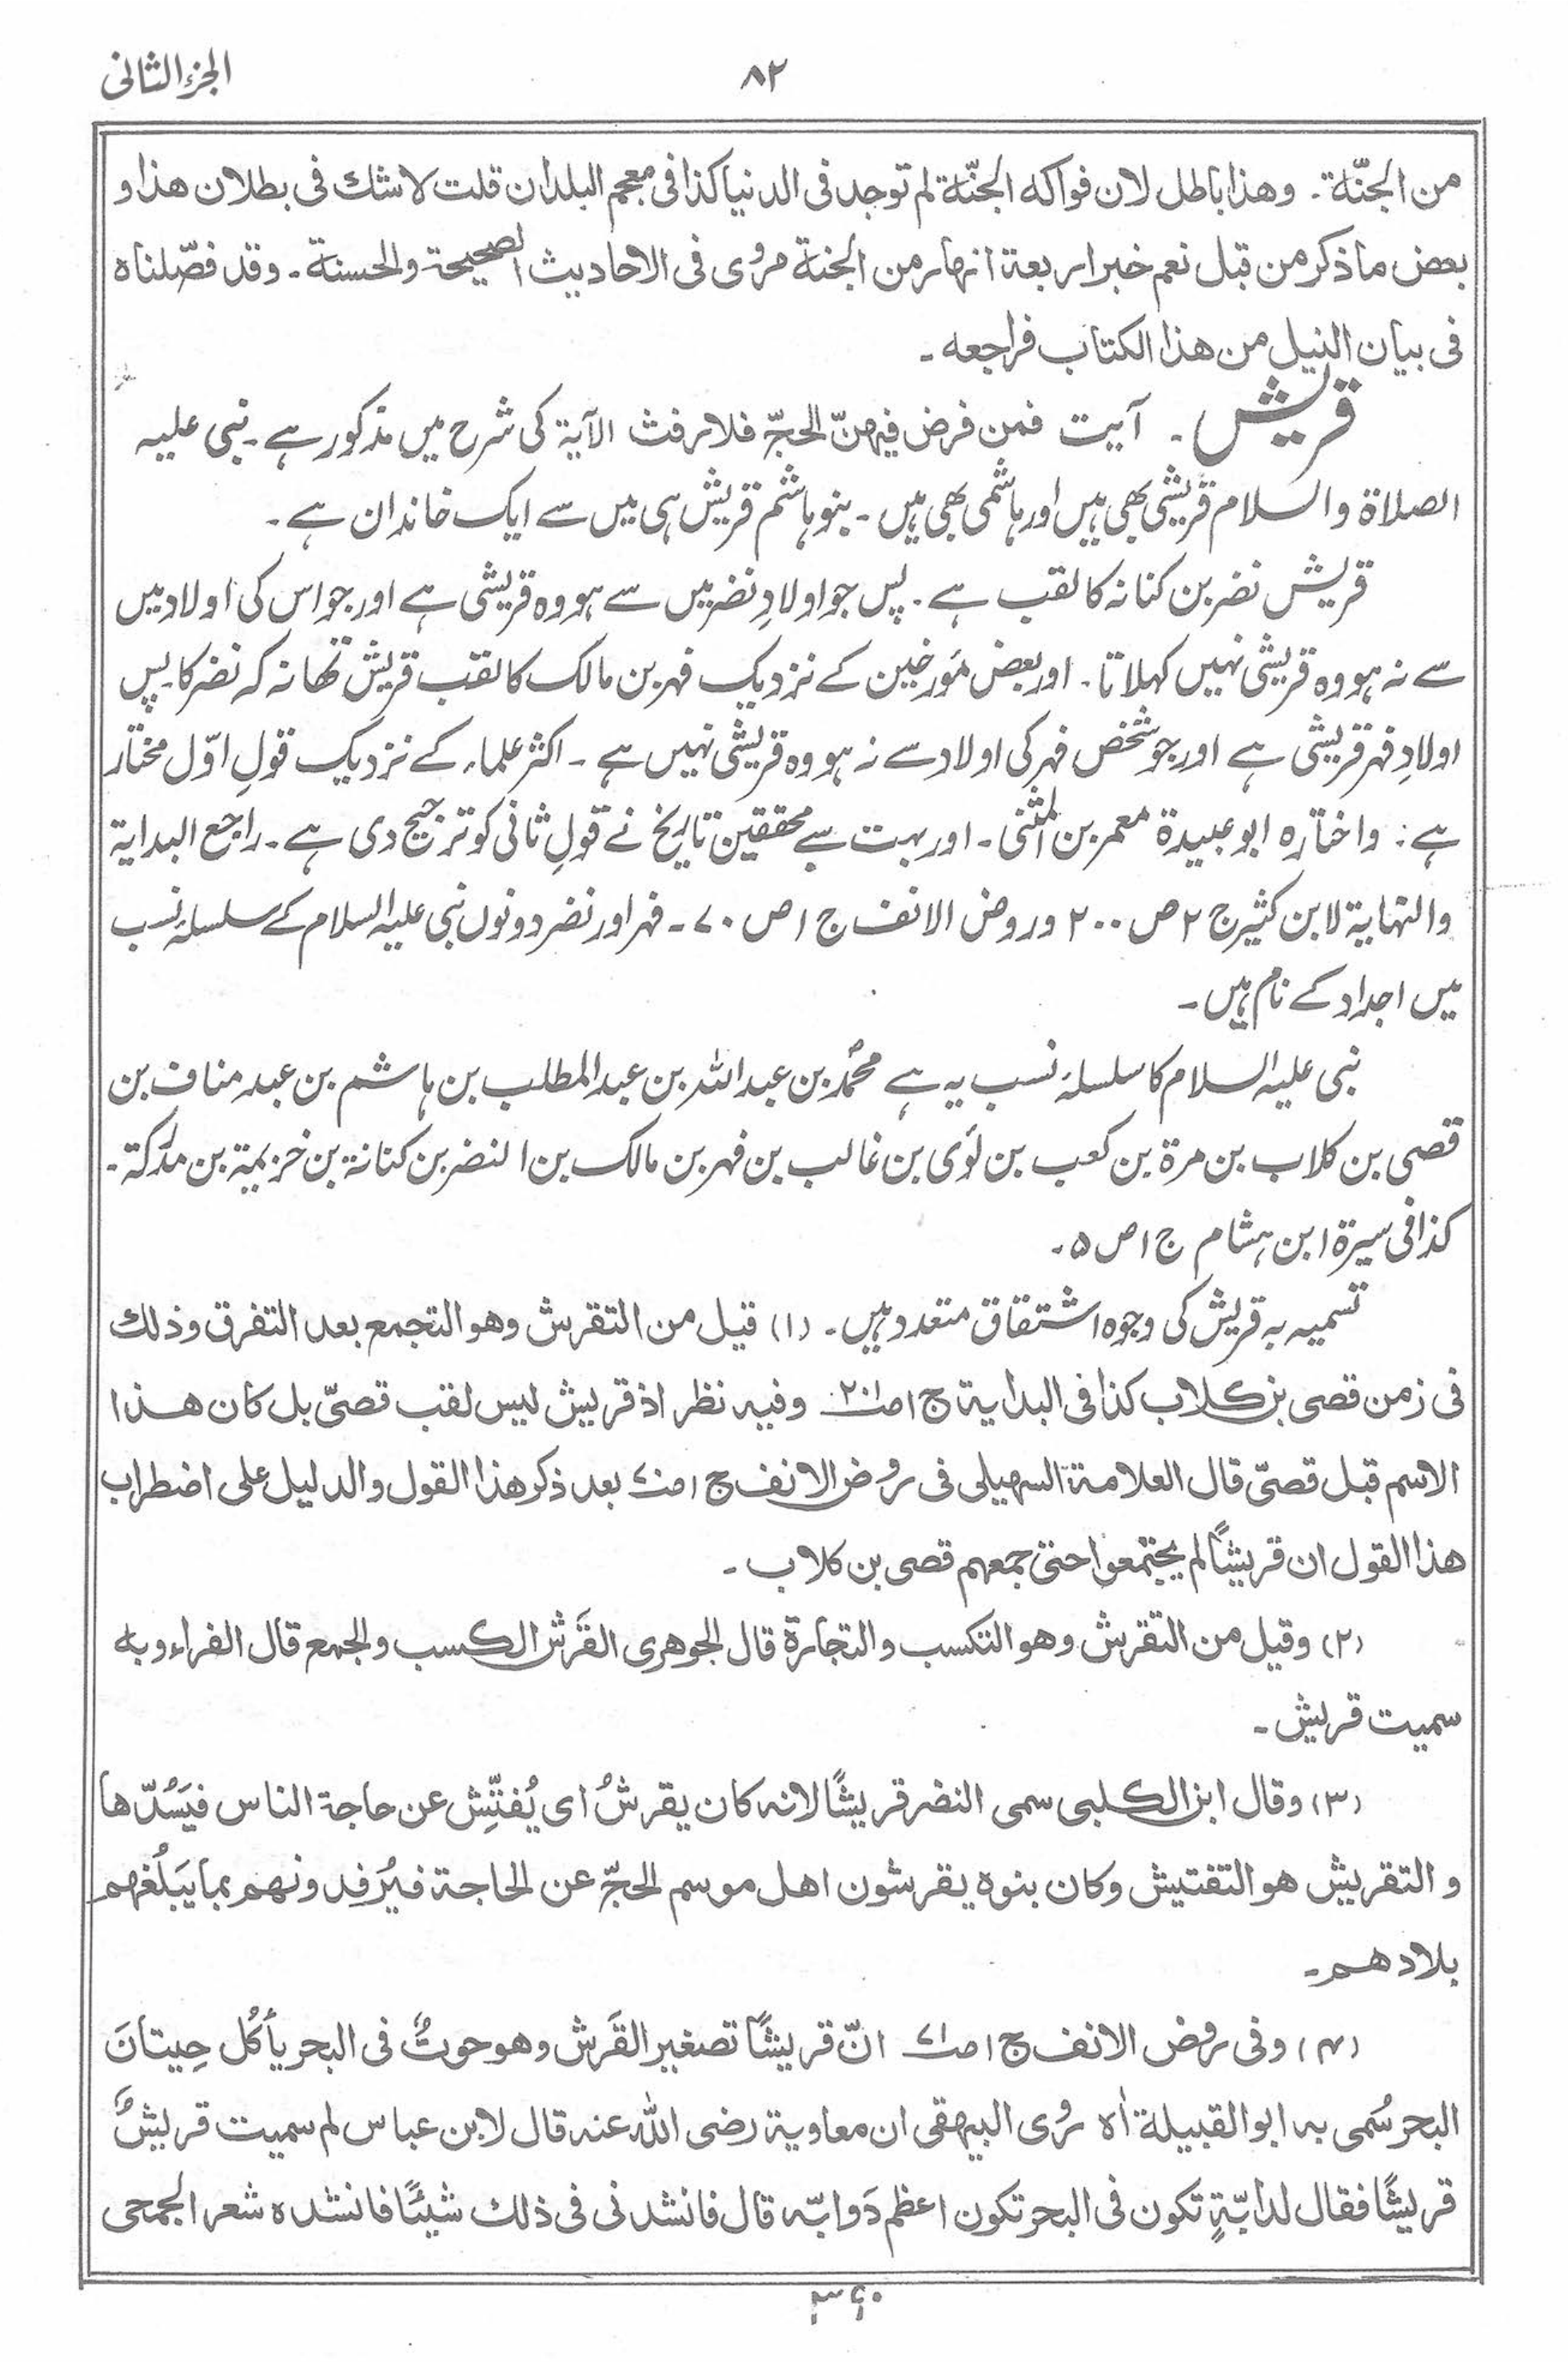 الجزء الثانی
۸۲
من الجنّة ۔ وهذا باطل لان فواكه الجنّة لم توجد فی الدنیا كذا فی معجم البلدان قلت لا شك فی بطلان هذا و
بعض ما ذكر من قبل نعم خبر اربعة انهار من الجنة مروی فی الاحادیث الصحیحة والحسنة ۔ وقد فصّلناه
فی بیان النیل من هذا الكتاب فراجعه ۔
قریش ۔ آیت فمن فرض فیهنّ الحجّ فلا رفث الآیة کی شرح میں مذکور ہے ۔ نبی علیہ
الصلاة والسلام قریشی بھی ہیں اور ہاشمی بھی ہیں ۔ بنو ہاشم قریش ہی میں سے ایک خاندان ہے ۔
قریش نضر بن کنانہ کا لقب ہے ۔ پس جو اولادِ نضر میں سے ہو وہ قریشی ہے اور جو اس کی اولاد میں
سے نہ ہو وہ قریشی نہیں کہلاتا ۔ اور بعض مؤرخین کے نزدیک فہر بن مالک کا لقب قریش تھا نہ کہ نضر کا پس
اولادِ فہر قریشی ہے اور جو شخص فہر کی اولاد سے نہ ہو وہ قریشی نہیں ہے ۔ اکثر علماء کے نزدیک قولِ اوّل مختار
ہے : واختارہ ابو عبیدة معمر بن المثنی ۔ اور بہت سے محققین تاریخ نے قولِ ثانی کو ترجیح دی ہے ۔ راجع البدایة
والنہایة لابن کثیر ج ۲ ص ۲۰۰ وروض الانف ج ۱ ص ۷۰ ۔ فہر اور نضر دونوں نبی علیہ السلام کے سلسلۂ نسب
میں اجداد کے نام ہیں ۔
نبی علیہ السلام کا سلسلۂ نسب یہ ہے محمّد بن عبد اللہ بن عبد المطلب بن ہاشم بن عبد مناف بن
قصی بن کلاب بن مرة بن کعب بن لؤی بن غالب بن فہر بن مالک بن النضر بن کنانة بن خزیمة بن مدرکة ۔
کذا فی سیرة ابن ہشام ج ۱ ص ۵ ۔
تسمیہ بہ قریش کی وجوہ اشتقاق متعدد ہیں ۔ (۱) قیل من التقرش وهو التجمع بعد التفرق وذلك
فی زمن قصی بن كلاب كذا فی البدایة ج ۱ ص ۲۰۱ وفیه نظر اذ قریش لیس لقب قصیّ بل كان هذا
الاسم قبل قصیّ قال العلامة السهیلی فی روض الانف ج ۱ ص ۷۰ بعد ذكر هذا القول والدلیل علی اضطراب
هذا القول ان قریشًا لم یجتمعوا حتی جمعهم قصی بن كلاب ۔
(۲) وقیل من التقرش وهو التكسب والتجارة قال الجوهری القَرش الكسب والجمع قال الفراء وبه
سمیت قریش ۔
(۳) وقال ابن الكلبی سمی النضر قریشًا لانه كان یقرشُ ای یُفتِّش عن حاجة الناس فیَسُدّها
و التقریش هو التفتیش وكان بنوه یقرشون اهل موسم الحجّ عن الحاجة فیُرفِدونهم بما یَبلُغهم
بلادهم ۔
(۴) وفی روض الانف ج ۱ ص ۷۱ انّ قریشًا تصغیر القَرش وهو حوتٌ فی البحر یأكُل حِیتانَ
البحر سُمی به ابو القبیلة اه رُوی البیهقی ان معاویة رضی الله عنه قال لابن عباس لم سمیت قریشٌ
قریشًا فقال لدابّةٍ تكون فی البحر تكون اعظم دَوابّه قال فانشدنی فی ذلك شیئًا فانشده شعر الجمحی